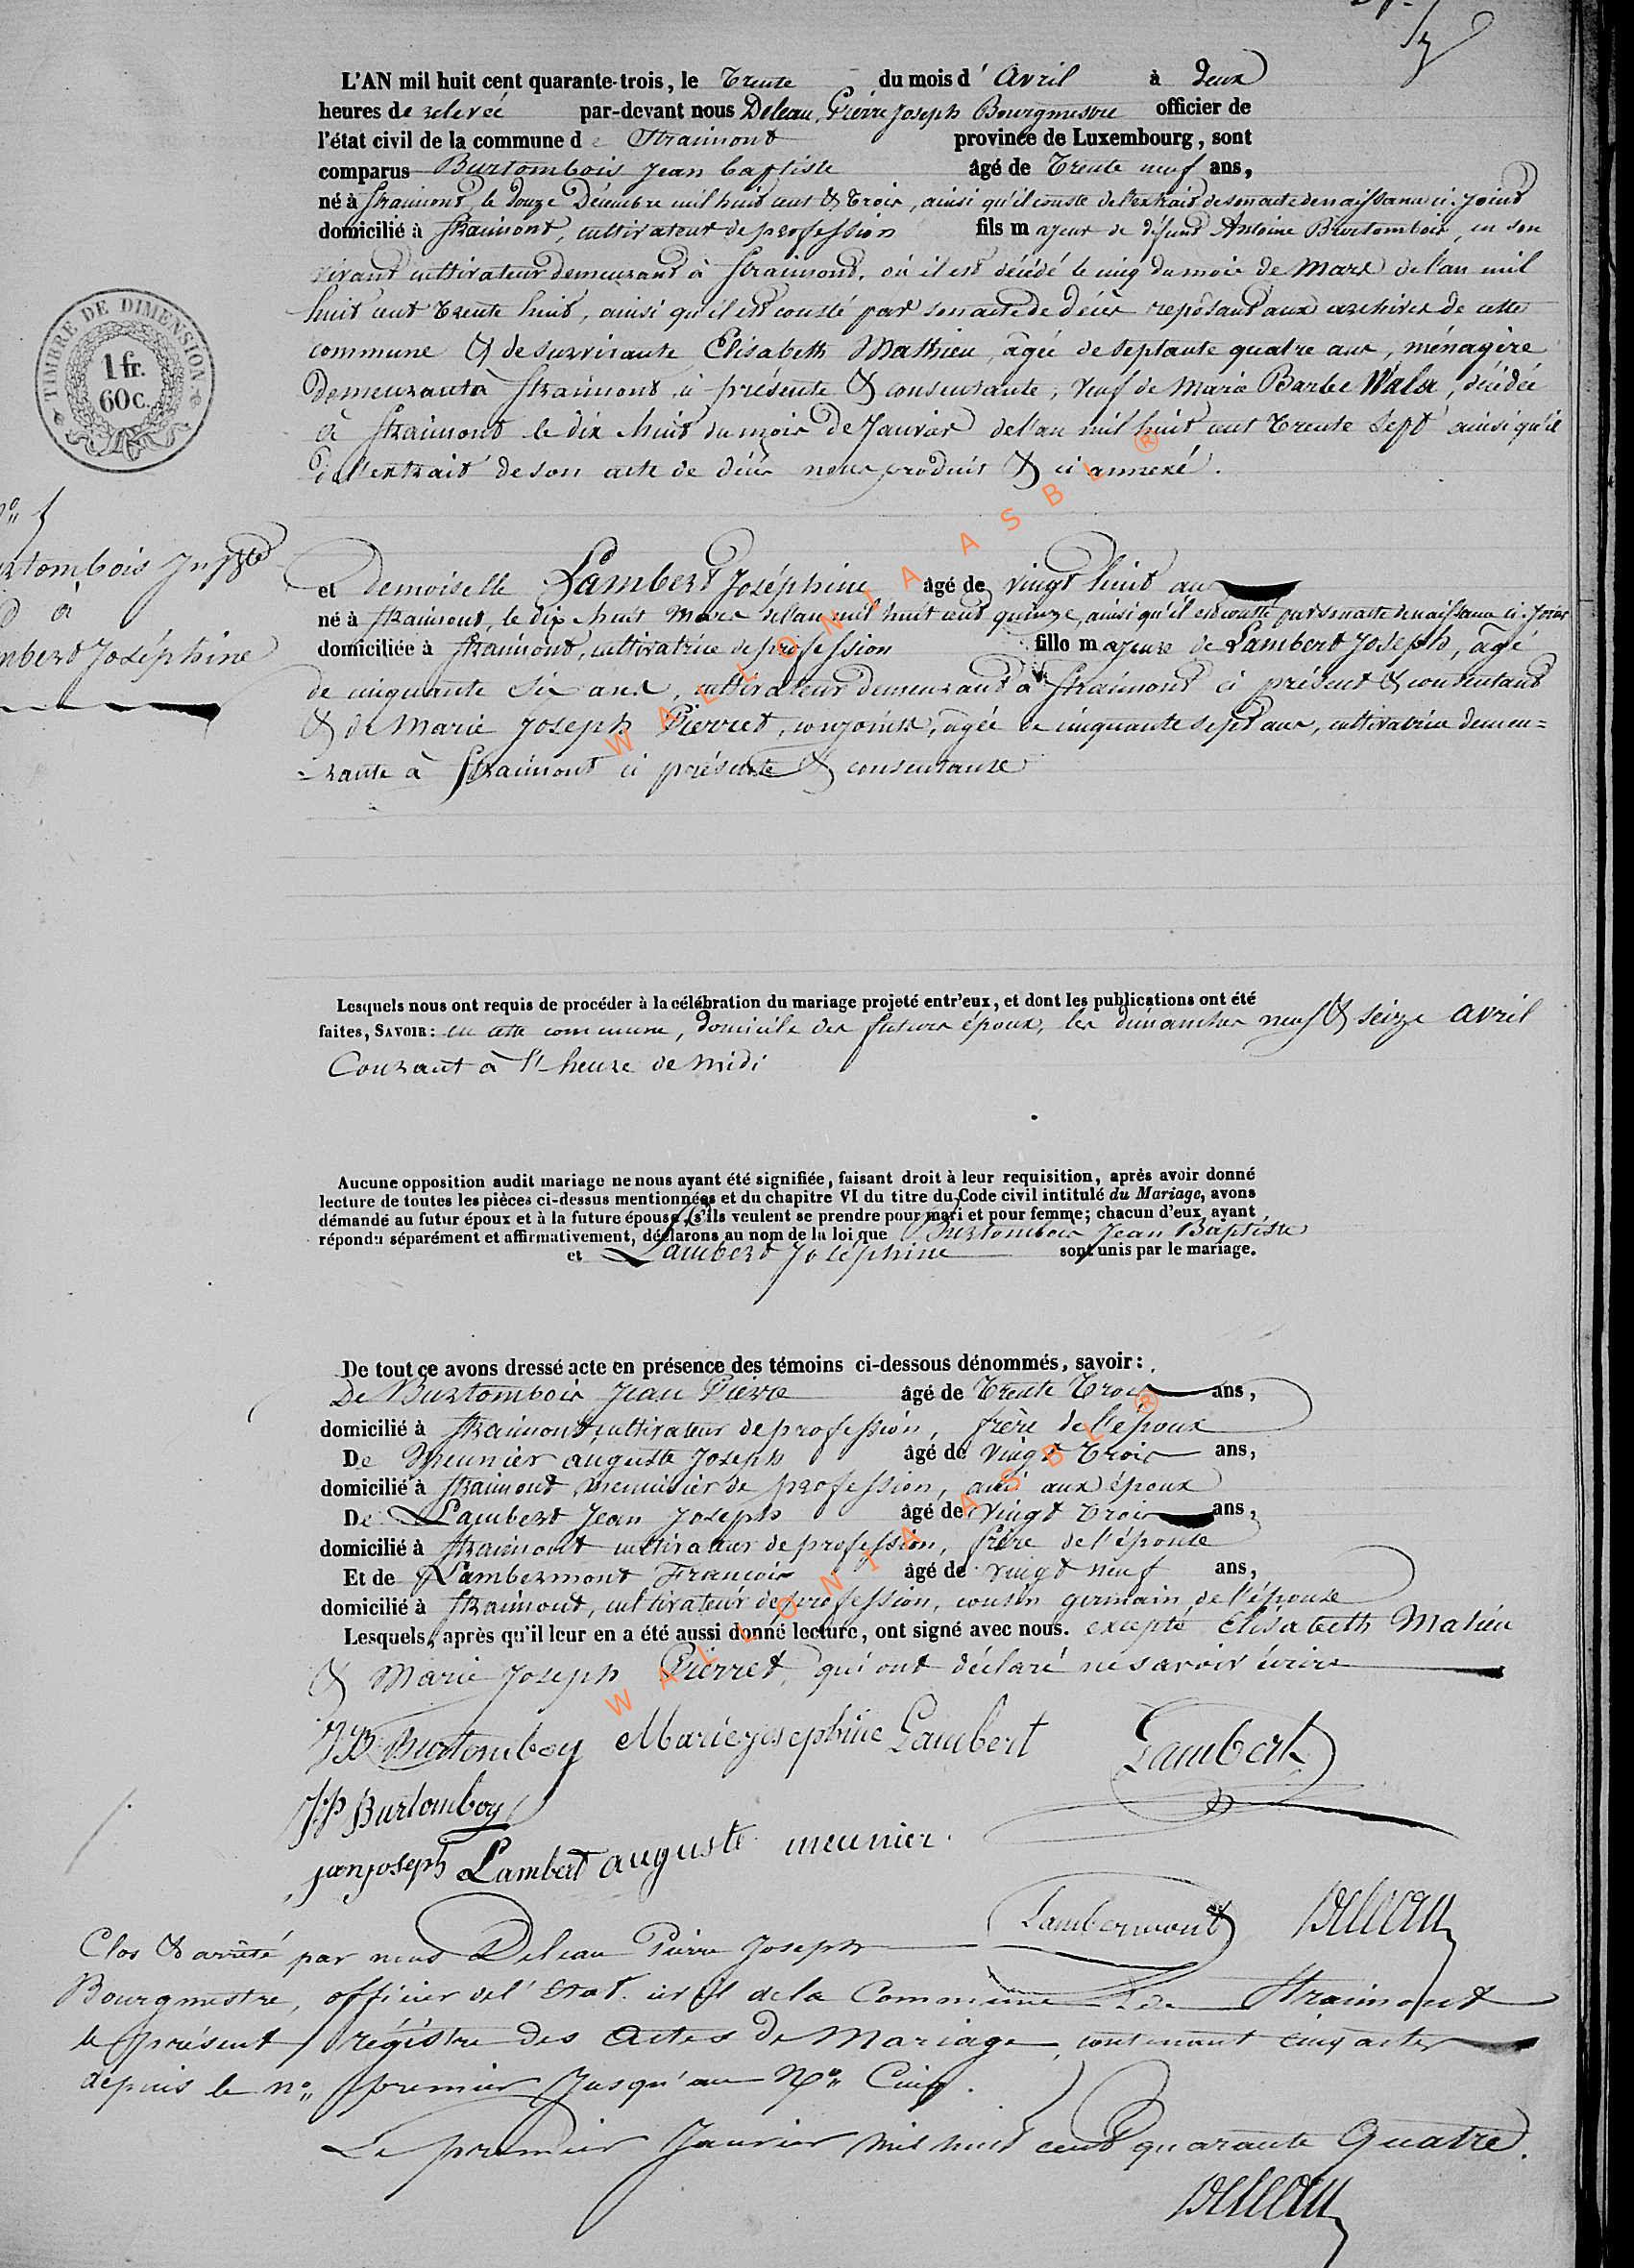 L'AN mil huit cent quarante-trois, le Trente du mois d' Avril à deux
heures de relevée par-devant nous Deleau, Pierre Joseph Bourgmestre officier de
l'état civil de la commune de Straimont province de Luxembourg, sont
comparus Burtombois Jean Baptiste âgé de Trente neuf ans,
né à Straimont, le douze Décembre mil huit cent & trois, ainsi qu'il conste de l'extrait de son acte de naissance ci-joint
domicilié à Straimont, cultivateur de profession fils majeur de défunt Antoine Burtombois, en son
vivant cultivateur demeurant à Straimont, où il est décédé le cinq du mois de Mars de l'an mil
huit cent trente huit, ainsi qu'il est consté par son acte de décès reposant aux archives de cette
commune & de survivante Elisabeth Mathieu, âgée de septante quatre ans, ménagère
demeurant à Straimont, ci présente & consentante, veuf de Marie Barbe Wala, décédée
à Straimont le dix huit du mois de Janvier de l'an mil huit cent trente sept ainsi qu'il
de l'extrait de son acte de décès nous produit & ci annexé.
TIMBRE DE DIMENSION
1 fr.
60 c.
No 5
rtombois Jn Bte
à
mbert Joséphine
et demoiselle Lambert Joséphine âgé de vingt huit ans
né à Straimont, le dix huit Mars de l'an mil huit cent quinze, ainsi qu'il est consté par son acte de naissance ci-joint
domiciliée à Straimont, cultivatrice de profession fille majeure de Lambert Joseph, âgé
de cinquante six ans, cultivateur demeurant à Straimont ci présent & consentant
& de Marie Joseph Pierret, conjoints, âgée de cinquante sept ans, cultivatrice demeu=
=rante à Straimont ci présente & consentante
Lesquels nous ont requis de procéder à la célébration du mariage projeté entr'eux, et dont les publications ont été
faites, SAVOIR: en cette commune, domicile des futurs époux, les dimanches neuf & seize avril
Courant à l'heure de midi
Aucune opposition audit mariage ne nous ayant été signifiée, faisant droit à leur requisition, après avoir donné
lecture de toutes les pièces ci-dessus mentionnées et du chapitre VI du titre du Code civil intitulé du Mariage, avons
démandé au futur époux et à la future épouse, s'ils veulent se prendre pour mari et pour femme; chacun d'eux ayant
répondu séparément et affirmativement, déclarons au nom de la loi que Burtombois Jean Baptiste
et Lambert Joséphine sont unis par le mariage.
De tout ce avons dressé acte en présence des témoins ci-dessous dénommés, savoir:
De Burtombois Jean Pierre âgé de Trente Trois ans,
domicilié à Straimont cultivateur de profession, frère de l'époux
De Meunier auguste Joseph âgé de vingt trois ans,
domicilié à Straimont menuisier de profession, ami aux époux
De Lambert Jean Joseph âgé de vingt trois ans,
domicilié à Straimont cultivateur de profession, frère de l'épouse
Et de Lambermont François âgé de vingt neuf ans,
domicilié à Straimont, cultivateur de profession, cousin germain de l'épouse
Lesquels, après qu'il leur en a été aussi donné lecture, ont signé avec nous. excepté Elisabeth Mahieu
& Marie Joseph Pierret, qui ont déclaré ne savoir écrire
JB Burtomboy Marie josephine Lambert Lambert
JP Burtomboy
jean joseph Lambert auguste meunier.
Lambermont Deleau
Clos & arrêté par nous Deleau Pierre Joseph
Bourgmestre, officier de l'Etat civil de la Commune de Straimont
le présent régistre des Actes de Mariage, contenant cinq actes
depuis le no premier jusqu'au No Cinq.
Le premier Janvier mil huit cent quarante Quatre.
Deleau
WALLONIA ASBL ®
WALLONIA ASBL ®